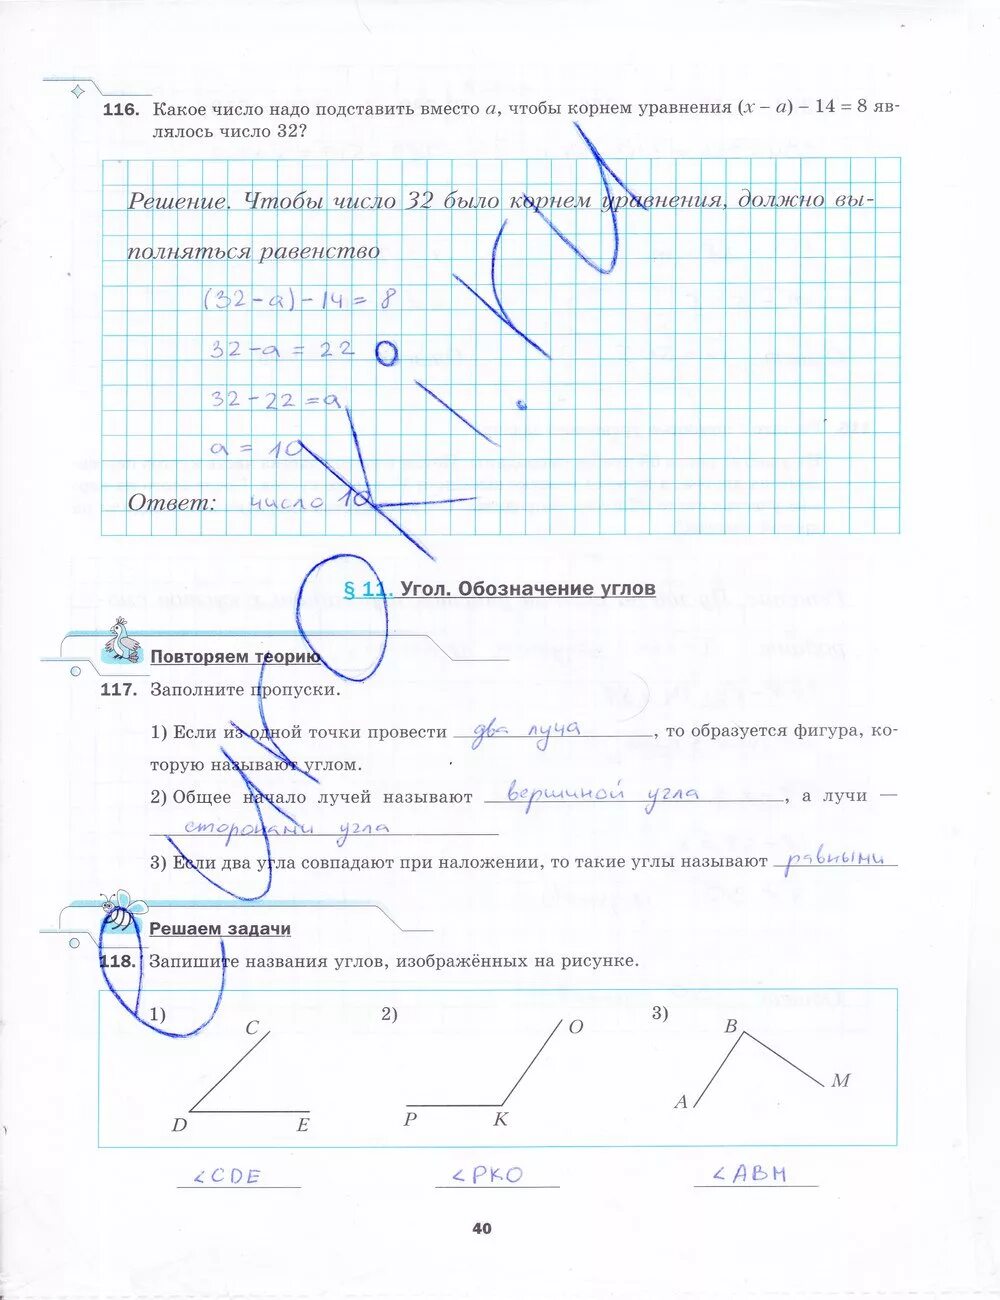 116. Какое число надо подставить вместо a, чтобы корнем уравнения (x – a) – 14 = 8 яв-
лялось число 32?
Решение. Чтобы число 32 было корнем уравнения, должно вы-
полняться равенство
(32-a)-14=8
32-a=22
32-22=a
a=10
Ответ: число 10
§ 11. Угол. Обозначение углов
Повторяем теорию
117. Заполните пропуски.
1) Если из одной точки провести два луча, то образуется фигура, ко-
торую называют углом.
2) Общее начало лучей называют вершиной угла, а лучи —
сторонами угла
3) Если два угла совпадают при наложении, то такие углы называют равными
Решаем задачи
118. Запишите названия углов, изображённых на рисунке.
1) 2) 3)
C O B
M
A
D E P K
<CDE <PKO <ABM
40
uroki.ru